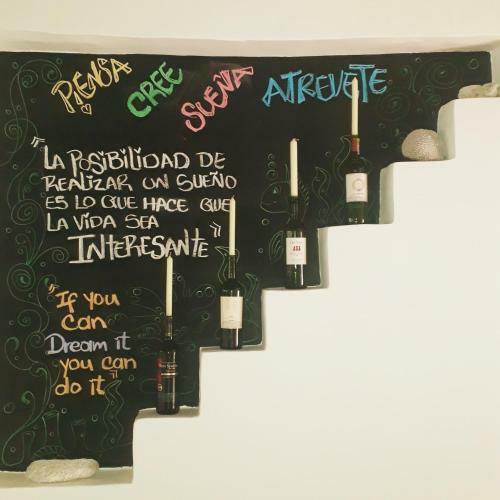 PIENSA CREE SUEÑA ATREVETE
"LA POSIBILIDAD DE
REALIZAR UN SUEÑO
ES LO QUE HACE QUE
LA VIDA SEA
INTERESANTE"
"If you
can
Dream it
you can
do it"